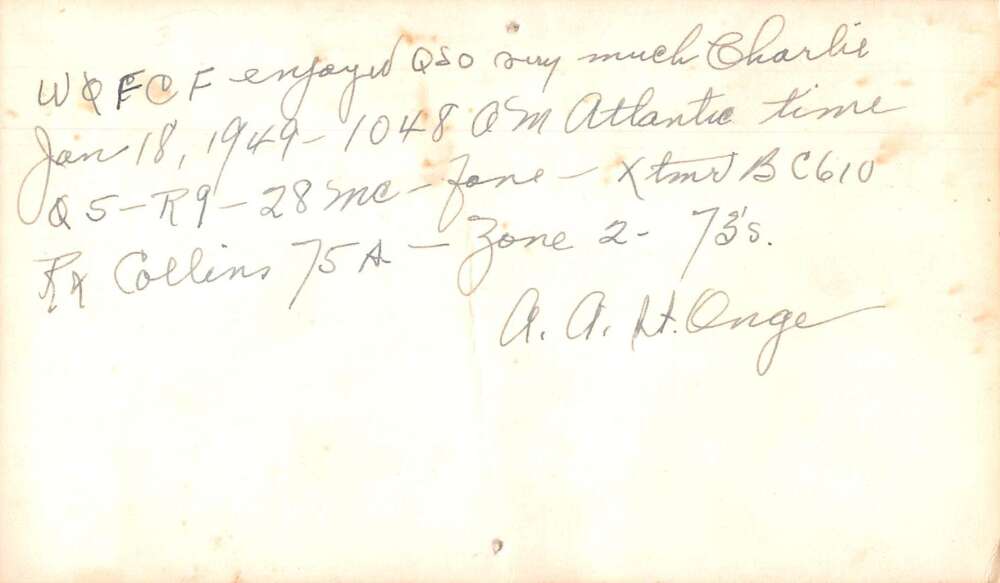 WØFCF enjoyed QSO very much Charlie
Jan 18, 1949 - 1048 AM Atlantic time
Q5 - R9 - 28 mc - fone - Xtmr BC610
Rx Collins 75A - Zone 2 - 73's.
A. A. St. Onge